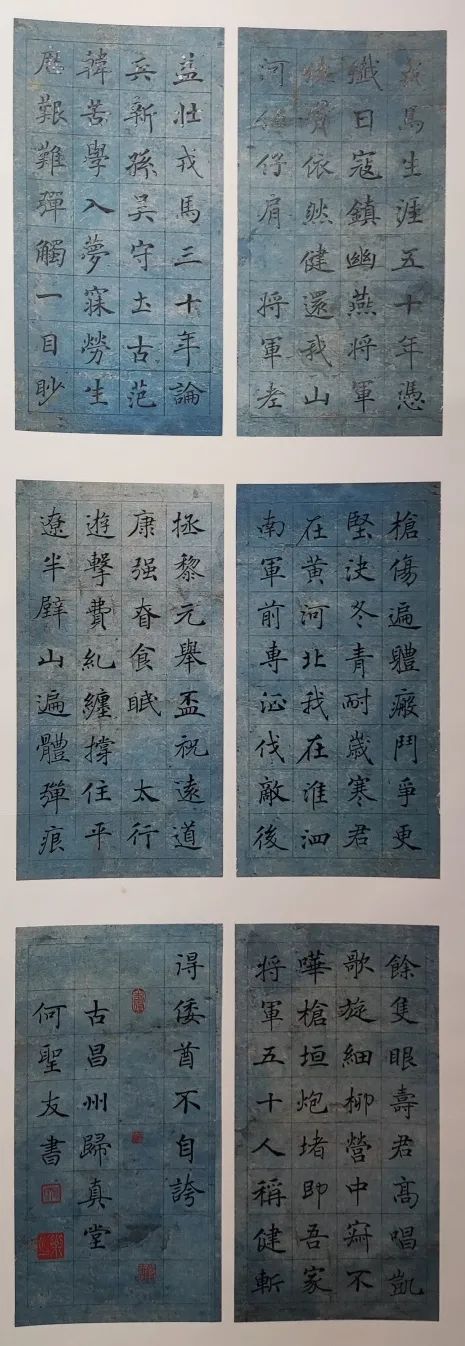 戎馬生涯五十年憑
殲日寇鎮幽燕將軍
依然健還我山
河仔肩 將軍老
益壯戎馬三十年論
兵新孫吳守土古范
韓苦學入夢寐勞生
歷艱難彈觸一目眇
槍傷遍體瘢鬥爭更
堅決冬青耐歲寒君
在黄河北我在淮泗
南軍前專征伐敵後
拯黎元舉盃祝遠道
康强眷食眠 太行
遊擊費糺纏撐住平
遼半壁山遍體彈痕
餘隻眼壽君高唱凱
歌旋細柳營中寂不
嘩槍垣炮堵即吾家
將軍五十人稱健斬
得倭酋不自誇
古昌州歸真堂
何聖友書